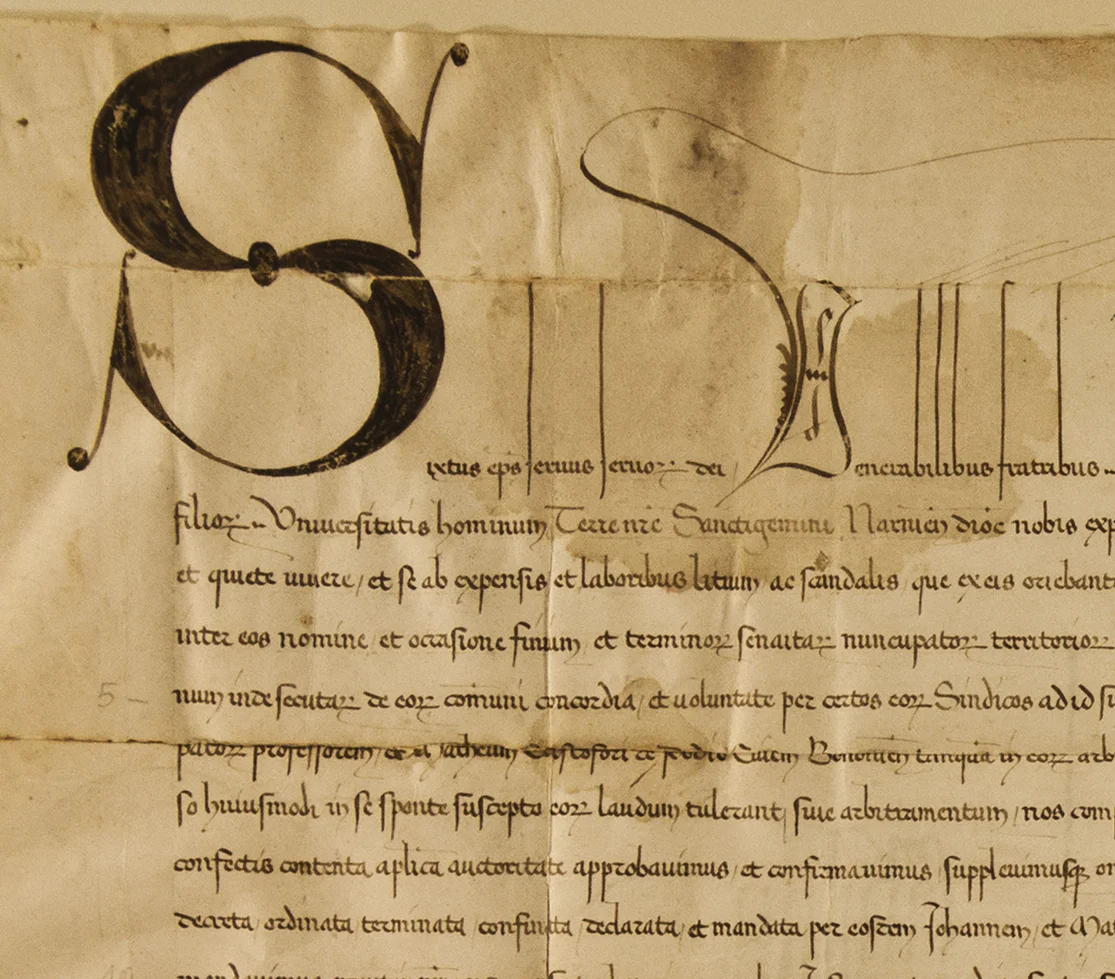 Sixtus eps servus servoꝝ dei Venerabilibus fratribus
filioꝝ Universitatis hominum Terre nre Sanctigemini Narnien dioc nobis exp
et quiete vivere, et se ab expensis et laboribus litium ac scandalis que ex eis oriebant
inter eos nomine et occasione finium et terminoꝝ senaitaꝝ nuncupatoꝝ territorioꝝ
num inde secutaꝝ de eoꝝ comuni concordia, et voluntate per certos eoꝝ Sindicos ad id
5
patoꝝ professorem Civem Bononien tanquā in eoꝝ arb
so huiusmodi in se sponte suscepto eoꝝ laudum tulerant, sive arbitramentum, nos com
confectis contenta aplica auctoritate approbavimus et confirmavimus supplevimusqꝫ
decreta ordinata terminata declarata, et mandata per eosdem Johannem, et Ma